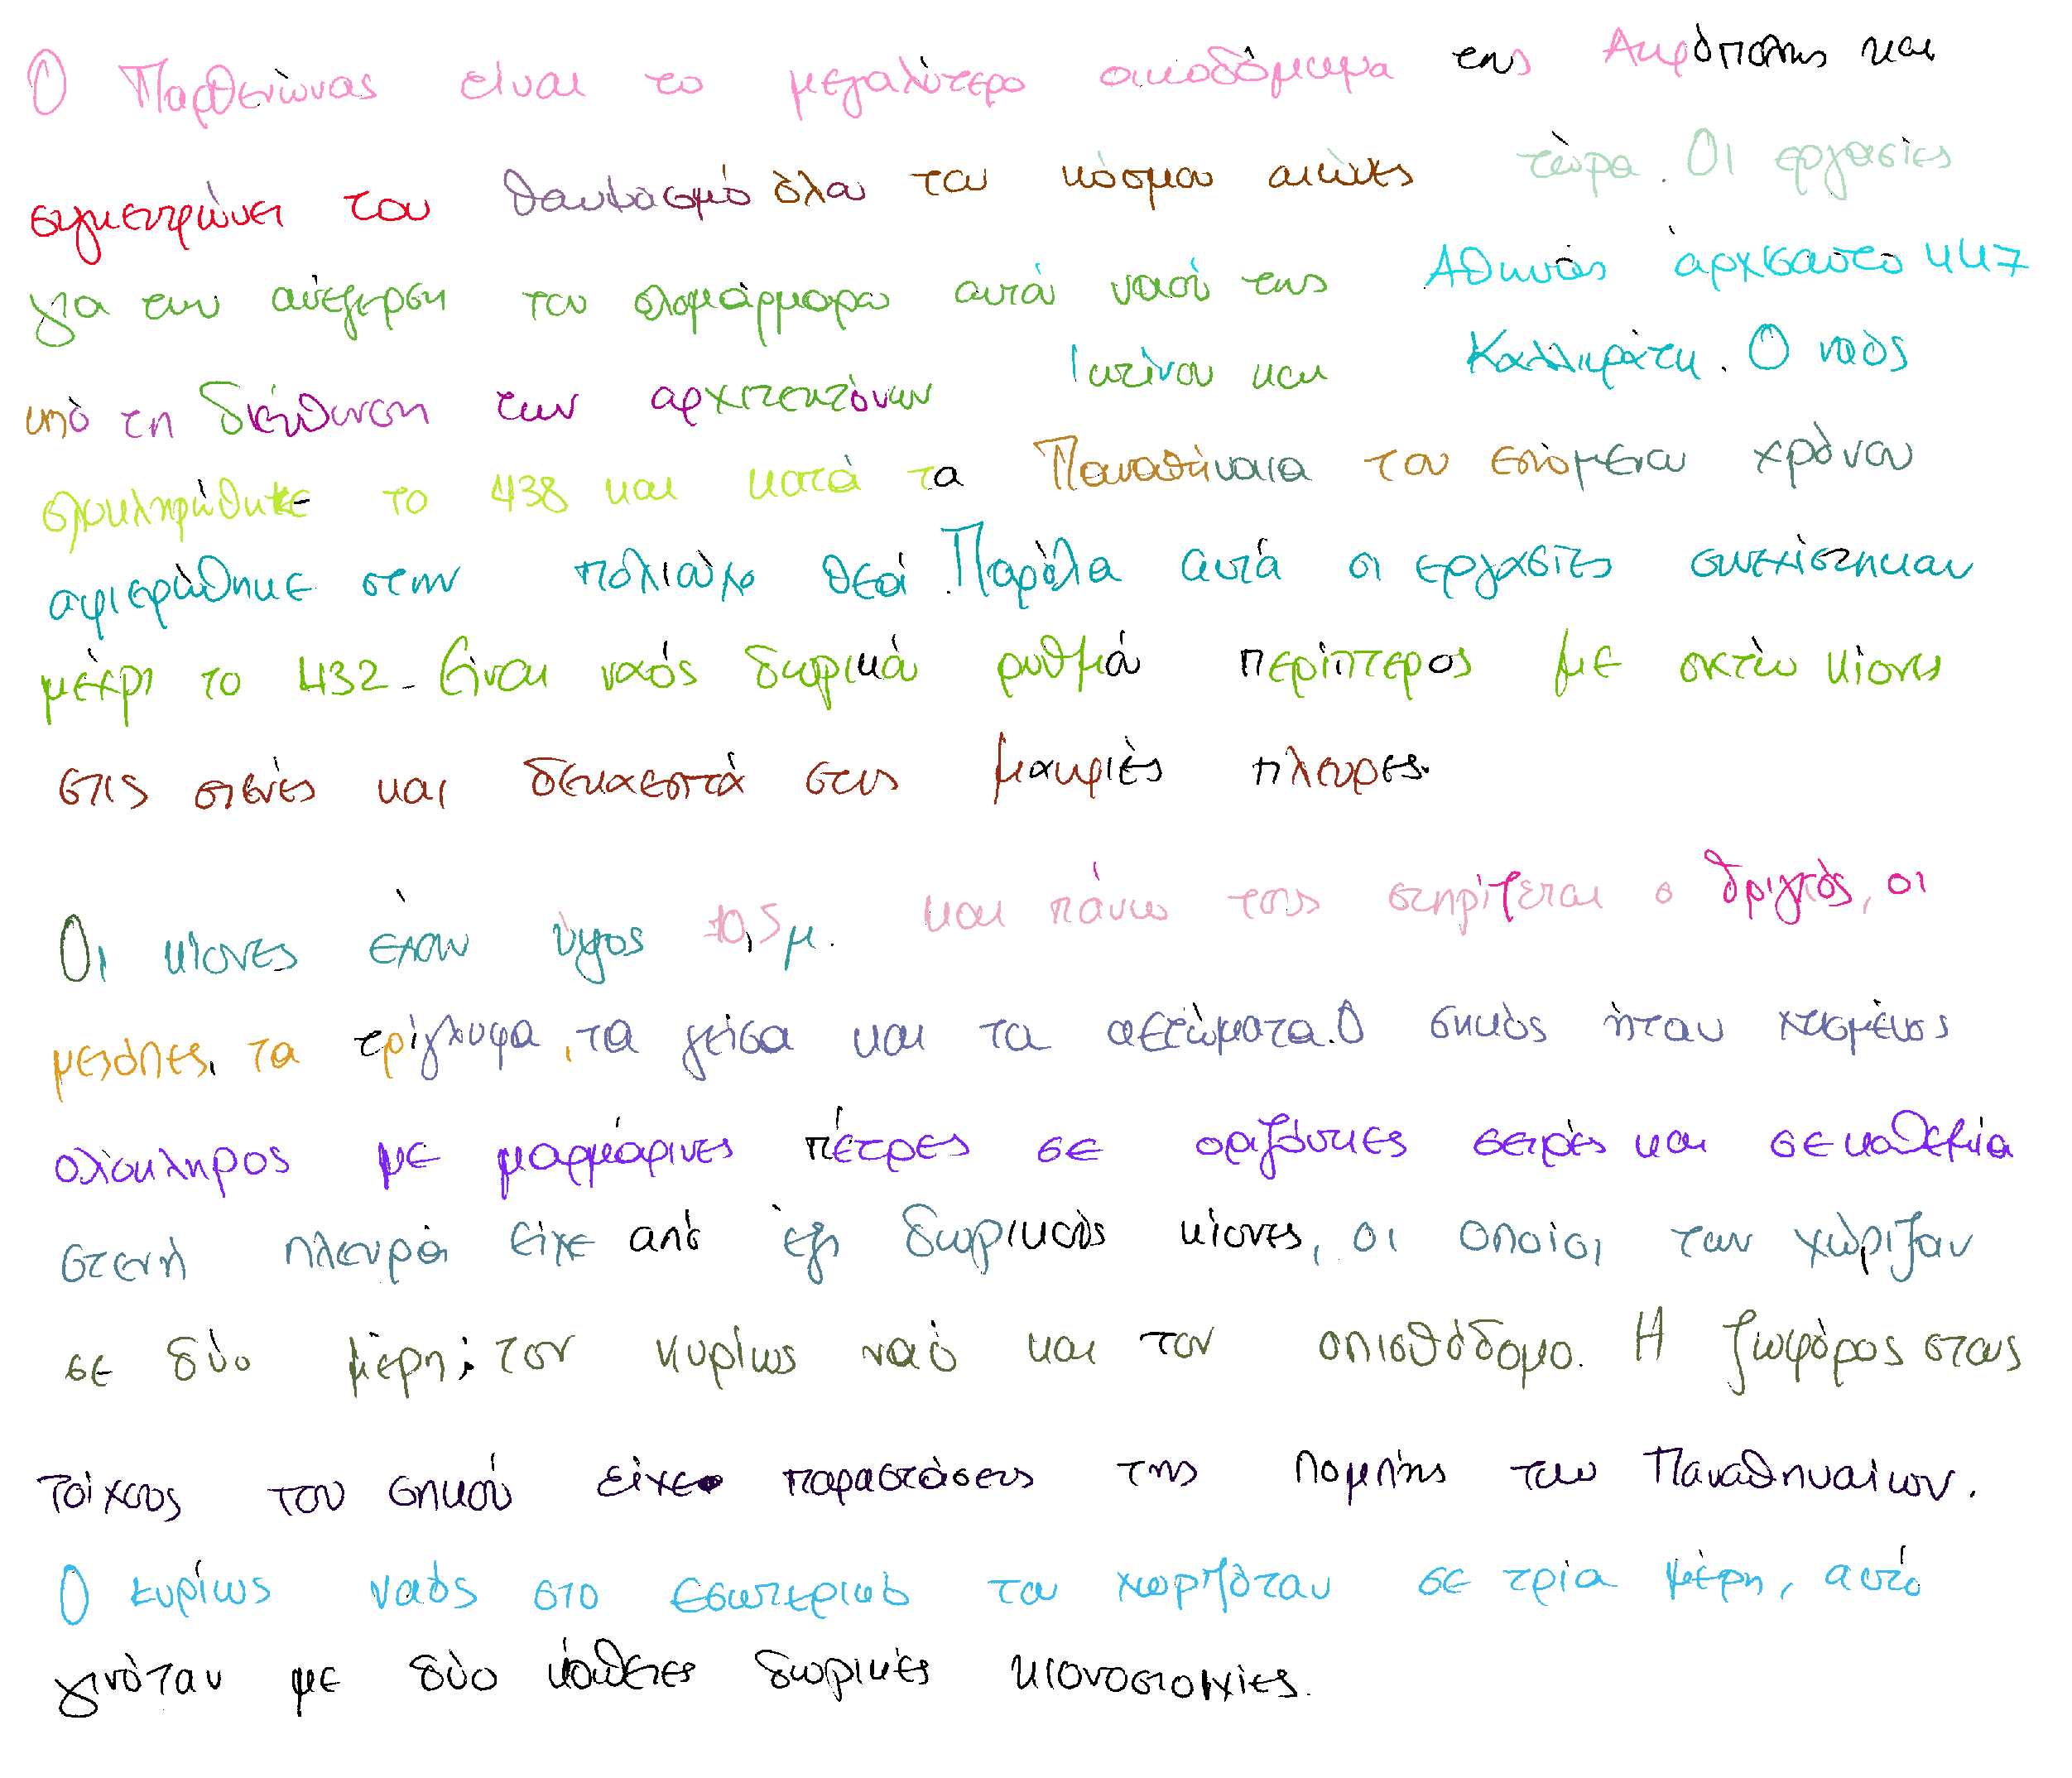 Ο Παρθενώνας είναι το μεγαλύτερο οικοδόμημα της Ακρόπολης και
συγκεντρώνει τον θαυμασμό όλου του κόσμου αιώνες τώρα. Οι εργασίες
για την ανέγερση του ολομάρμαρου αυτού ναού της Αθηνάς άρχισαν το 447
υπό τη διεύθυνση των αρχιτεκτόνων Ικτίνου και Καλλικράτη. Ο ναός
ολοκληρώθηκε το 438 και κατά τα Παναθήναια του επόμενου χρόνου
αφιερώθηκε στην πολιούχο θεά. Παρόλα αυτά οι εργασίες συνεχίστηκαν
μέχρι το 432. Είναι ναός δωρικού ρυθμού περίπτερος με οκτώ κίονες
στις στενές και δεκαεπτά στις μακριές πλευρες.
Οι κίονες έχουν ύψος 10,5μ. και πάνω τους στηρίζεται ο θριγκός, οι
μετόπες, τα τρίγλυφα, τα γείσα και τα αετώματα. Ο σηκός ήταν χτισμένος
ολόκληρος με μαρμάρινες πέτρες σε οριζόντιες σειρές και σε καθεμία
στενή πλευρά είχε από έξι δωρικούς κίονες, οι οποίοι τον χώριζαν
σε δύο μέρη; τον κυρίως ναό και τον οπισθόδομο. Η ζωφόρος στους
τοίχους του σηκού είχε παραστάσεις της πομπής των Παναθηναίων.
Ο κυρίως ναός στο εσωτερικό του χωριζόταν σε τρία μέρη, αυτό
γινόταν με δύο κάθετες δωρικές κιονοστοιχίες.